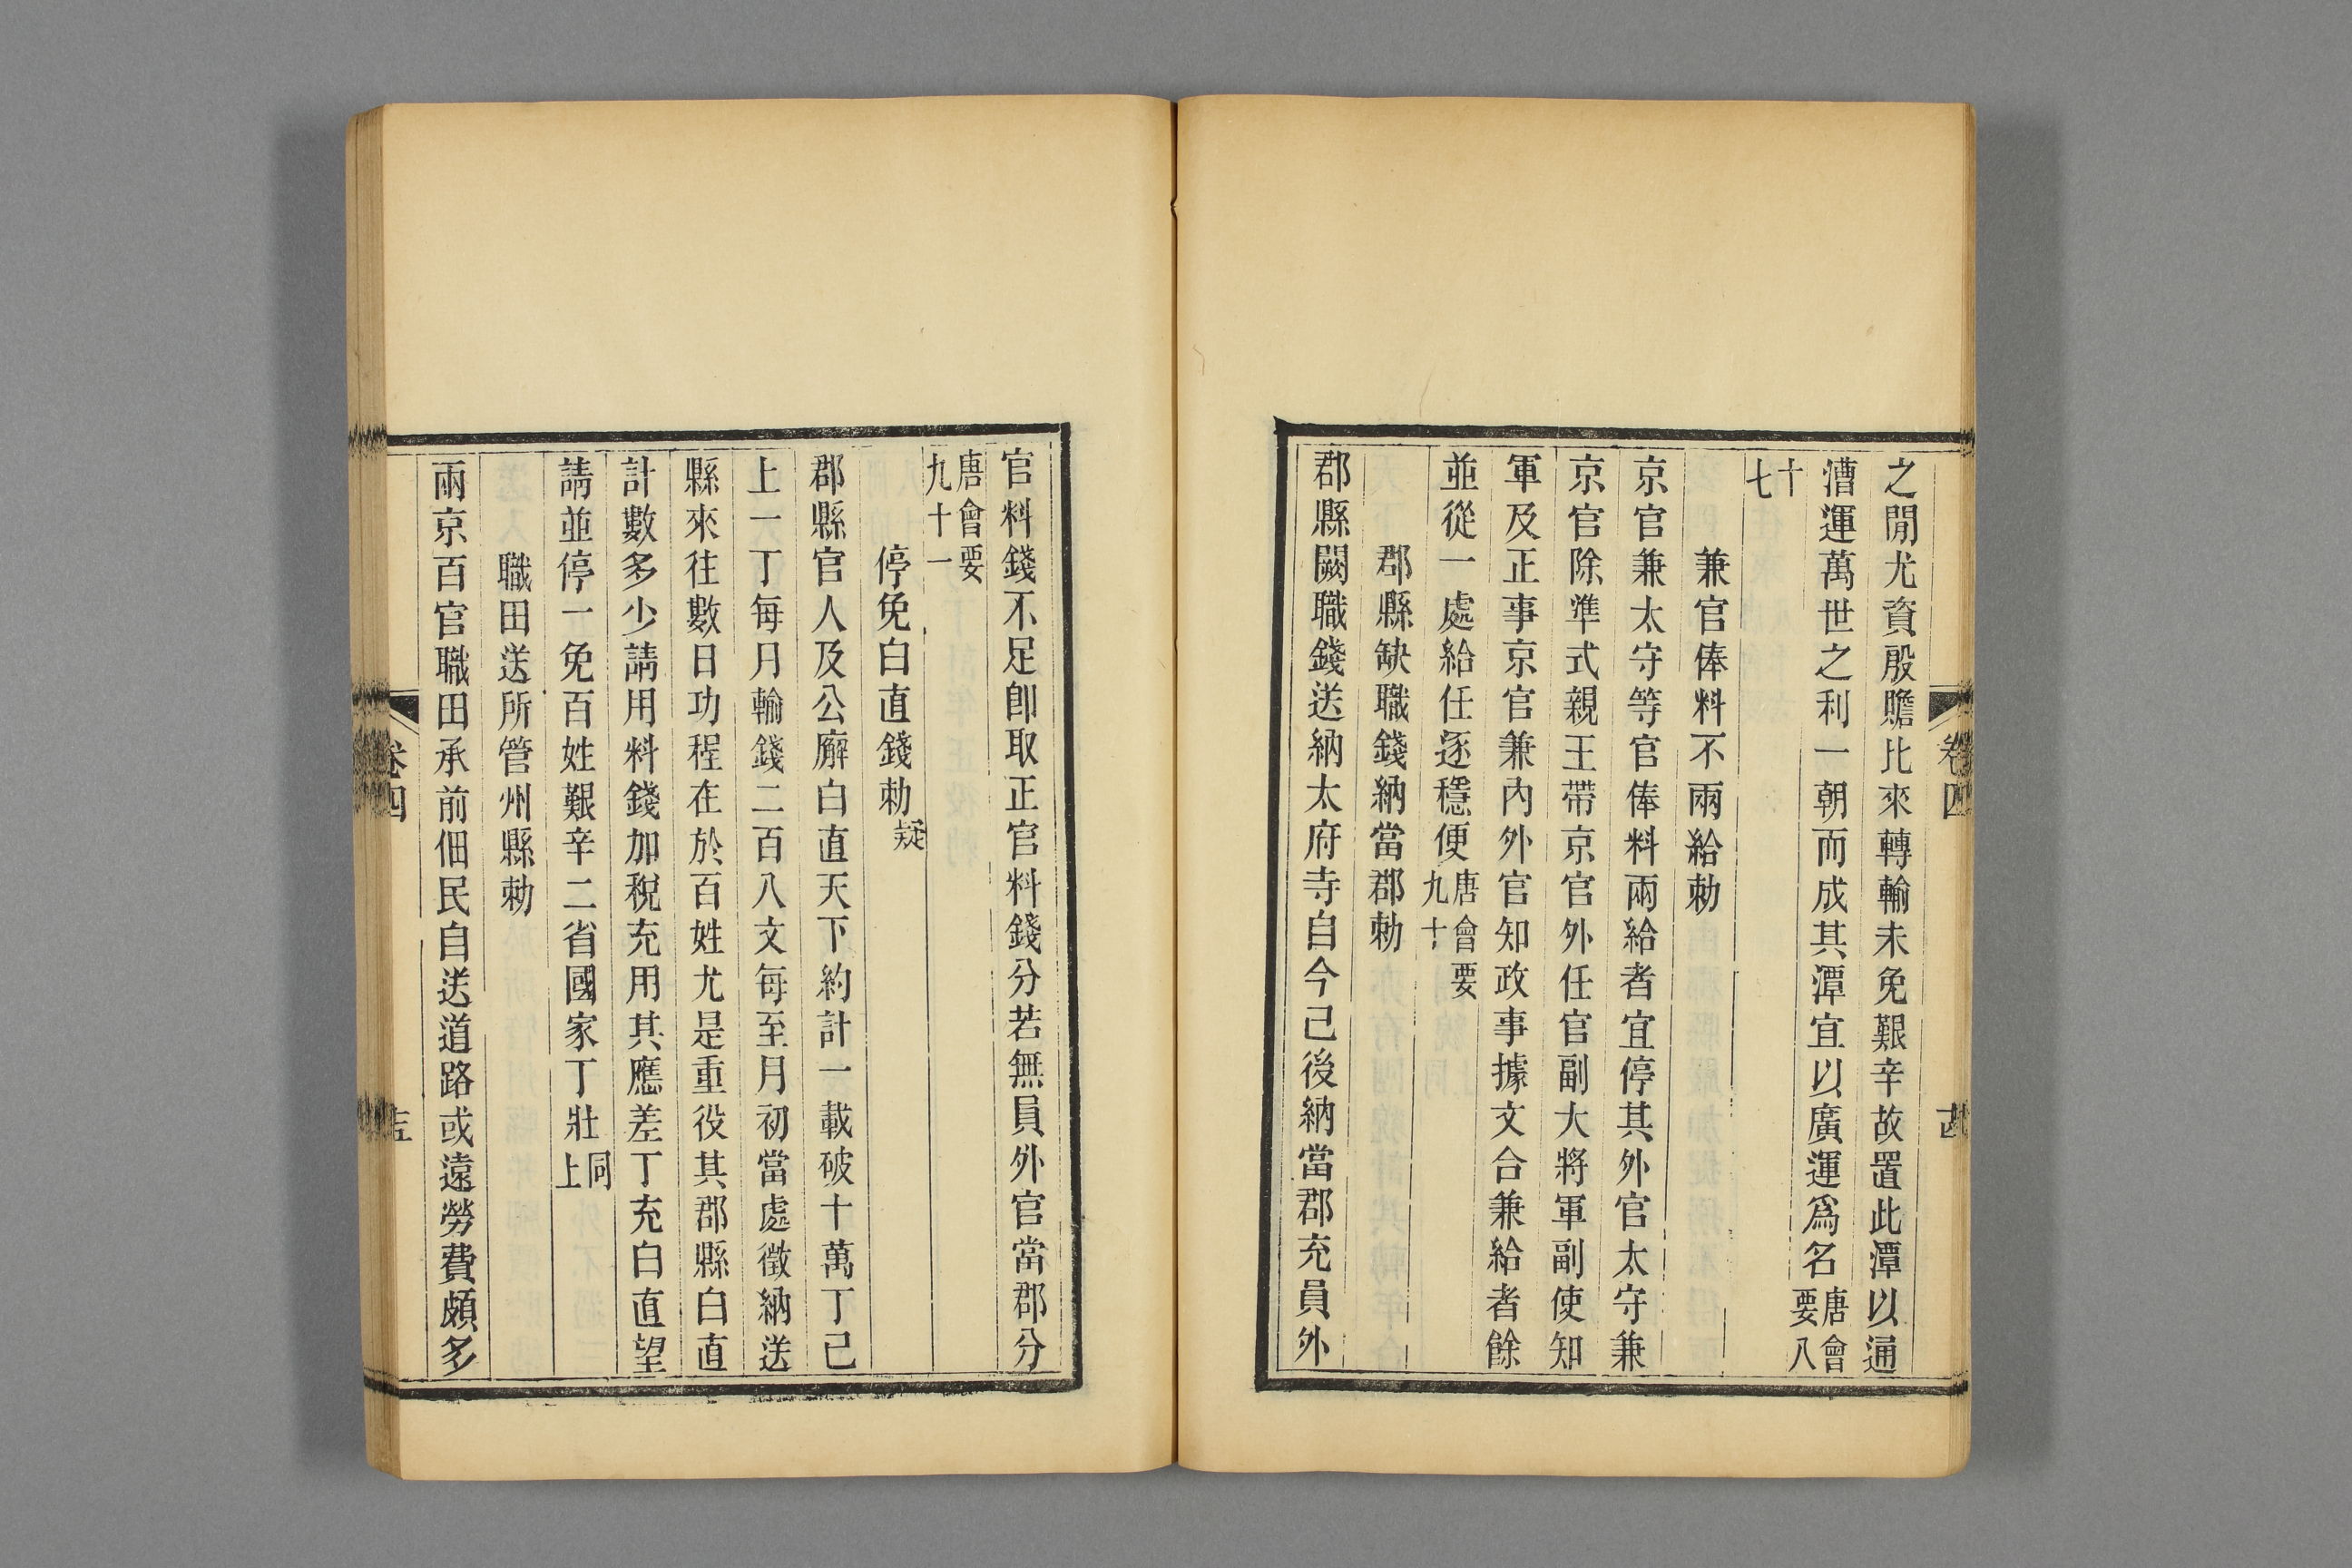 之閒尤資殷贍比來轉輸未免艱辛故置此潭以通
漕運萬世之利一朝而成其潭宜以廣運爲名唐會要八
十七
兼官俸料不兩給勅
京官兼太守等官俸料兩給者宜停其外官太守兼
京官除準式親王帶京官外任官副大將軍副使知
軍及正事京官兼內外官知政事據文合兼給者餘
並從一處給任逐穩便唐會要九十
郡縣缺職錢納當郡勅
郡縣闕職錢送納太府寺自今已後納當郡充員外
官料錢不足卽取正官料錢分若無員外官當郡分
唐會要九十一
停免白直錢勅疑
郡縣官人及公廨白直天下約計一載破十萬丁已
上一丁每月輸錢二百八文每至月初當處徵納送
縣來往數日功程在於百姓尤是重役其郡縣白直
計數多少請用料錢加稅充用其應差丁充白直望
請並停一免百姓艱辛二省國家丁壯同上
職田送所管州縣勅
兩京百官職田承前佃民自送道路或遠勞費頗多
卷四